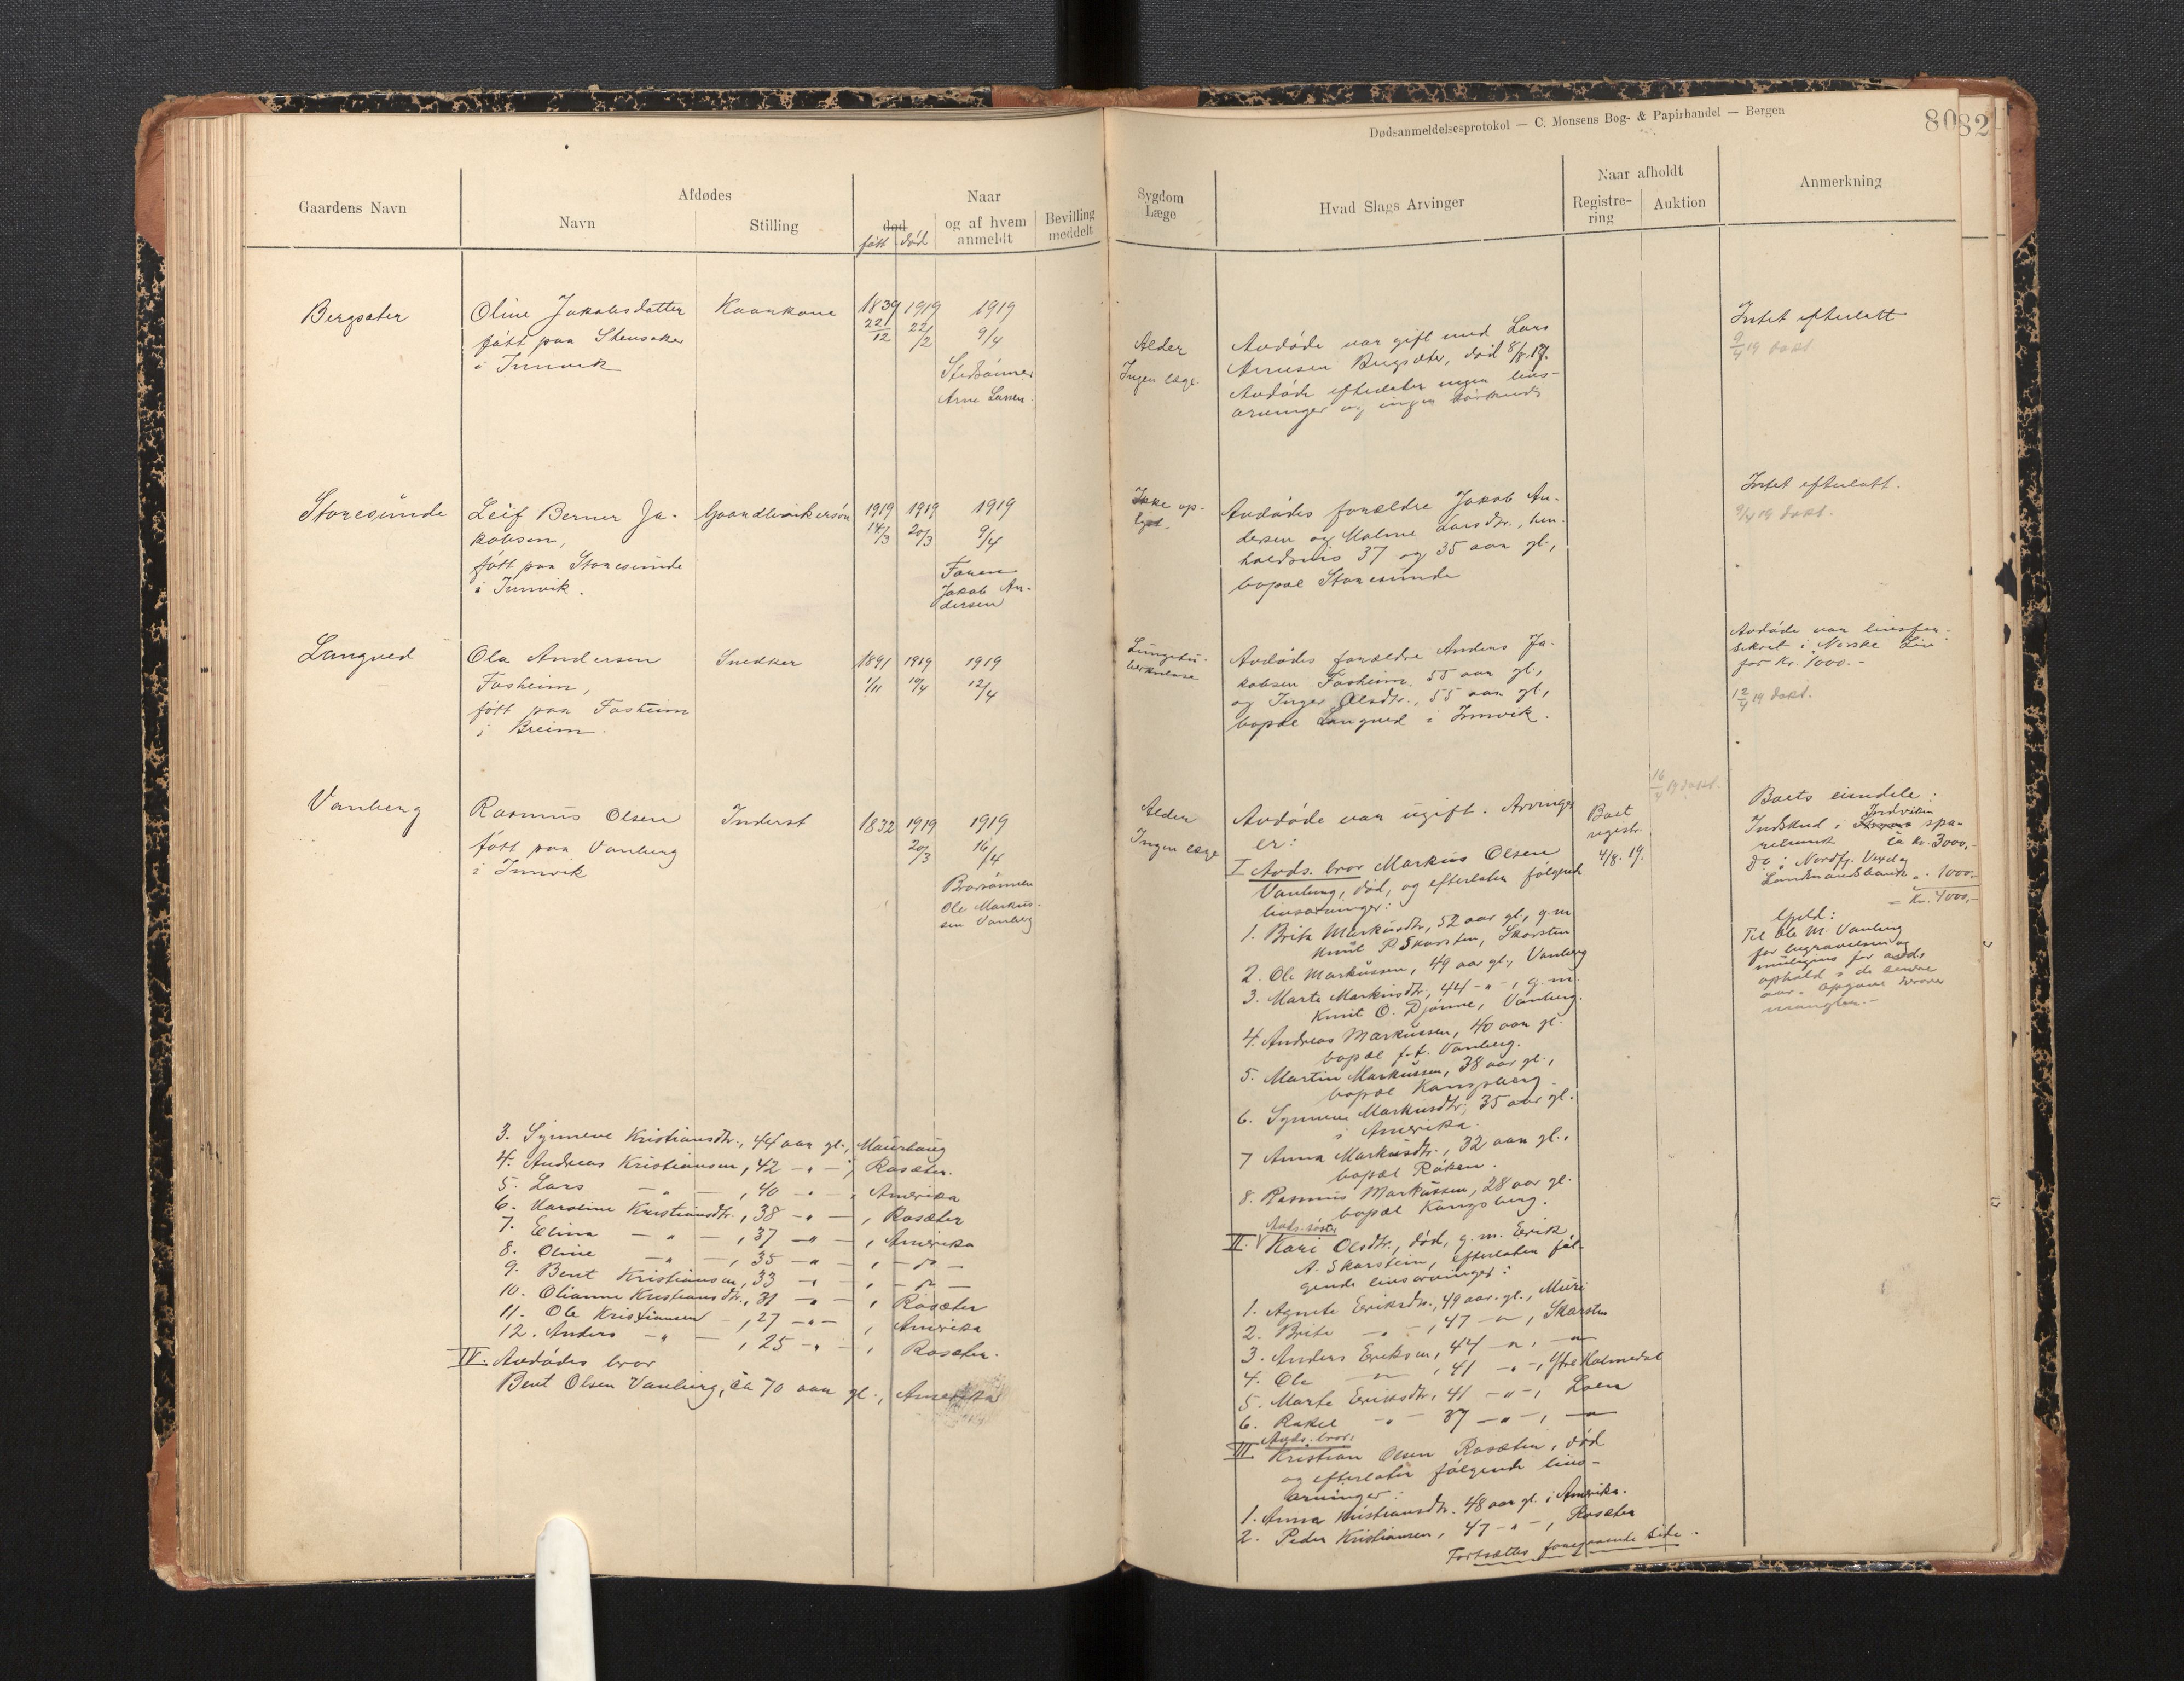 Dødsanmeldelsesprotokol — C. Monsens Bog- & Papirhandel — Bergen
80
82
Gaardens Navn
Afdødes
Navn
Stilling
Naar
død
fött død
og af hvem
anmeldt
Bevilling
meddelt
Sygdom
Læge
Hvad Slags Arvinger
Naar afholdt
Registre-
ring
Auktion
Anmerkning
Bergsæter
Oline Jakobsdatter
fött paa Stensaker
i Innvik
Kaarkone
1839
22/12
1919
22/2
1919
9/4
Stedsönnen
Arne Larsen
Alder
Ingen læge.
Avdöde var gift med Lars
Arnesen Bergsæter, död 8/8.17.
Avdöde efterlater ingen livs-
arvinger og ingen
Intet efterlatt
9/4 19 dokt
Storesunde
Leif Berner Ja-
kobsen,
fött paa Storesunde
i Innvik.
Gaardbrukersön
1919
14/3
1919
20/3
1919
9/4
Faren
Jakob An-
dersen
Ikke op-
lyst.
Avdödes forældre Jakob An-
dersen og Malene Larsdtr., hen-
holdsvis 37 og 35 aar gl.,
bopæl Storesunde
Intet efterlatt.
9/4 19 dokt.
Langved
Ola Andersen
Fosheim,
fött paa Fosheim
i Breim.
Snedker
1891
1/11
1919
10/4
1919
12/4
Lungetu-
berkulose
Avdödes forældre Anders Ja-
kobsen Fosheim, 55 aar gl,
og Inger Olsdtr., 55 aar gl,
bopæl Langved i Innvik.
Avdöde var livsfor-
sikret i Norske Liv
for Kr. 1000.-
12/4 19 dokt.
Vanberg
Rasmus Olsen
fött paa Vanberg
i Innvik
Inderst
1832
1919
20/3
1919
16/4
Brorsönnen
Ole Markus-
sen Vanberg
Alder
Ingen læge
Avdöde var ugift. Arvinger
er:
I Avds. bror Markus Olsen
Vanberg, död, og efterlater fölgende
livsarvinger:
1. Brite Markusdtr, 52 aar gl., g.m
Knut P. Skarsten, Skarsten
2. Ole Markussen, 49 aar gl., Vanberg
3. Marte Markusdtr, 44 - " -, g.m.
Knut O. Djönne, Vanberg.
4. Andreas Markussen, 40 aar gl.
bopæl f.t. Vanberg.
5. Martin Markussen, 38 aar gl.,
bopæl Kongsberg
6. Synneve Markusdtr, 35 aar gl.
i Amerika.
7 Anna Markusdtr., 32 aar gl.,
bopæl Röken.
8. Rasmus Markussen, 28 aar gl.
bopæl Kongsberg.
Avds. söster
II. Kari Olsdtr., död, g.m. Erik
A. Skarstein, efterlater föl-
gende livsarvinger:
1. Agnete Eriksdtr., 49 aar. gl., Muri
2. Brite - " - , 47 - " - , Skarsten
3. Anders Eriksen, 44 - " - , - " -
4. Ole - " - , 41 - " - , Ytre Holmedal
5. Marte Eriksdtr, 41 - " - , Loen
6. Rakel - " - 37 - " - , - " -
Avds. bror:
III Kristian Olsen Rosæter, död
og efterlater fölgende livs-
arvinger:
1. Anna Kristiansdtr. 48 aar gl. i Amerika.
2. Peder Kristiansen, 47 - " - , Rosæter
Fortsættes foregaaende side.
Boet
registr.
4/8. 19.
16/4 19 dokt.
Boets eiendele:
Indskud i Indviken spa-
rebank ca Kr. 3000,-
Do i Nordfj. Vexel og
Landmandsbank " 1000,-
= Kr. 4000,-
Gjeld:
Til Ole M. Vanberg
for begravelsen og
muligens for avds
ophold i de senere
aar. Opgave herover
mangler.-
3. Synneve Kristiansdtr., 44 aar gl., Maurhaug
4. Andreas Kristiansen, 42 - " - , Rosæter.
5. Lars - " - , 40 - " - , Amerika
6. Karoline Kristiansdtr., 38 - " - , Rosæter
7. Elina - " - , 37 - " - , Amerika
8. Oline - " - , 35 - " - , - " -
9. Bent Kristiansen, 33 - " - , - " -
10. Olianna Kristiansdtr., 31 - " - , Rosæter
11. Ole Kristiansen, 27 - " - , Amerika
12. Anders - " - , 25 - " - , Rosæter.
IV. Avdödes bror
Bent Olsen Vanberg, ca 70 aar gl., Amerika